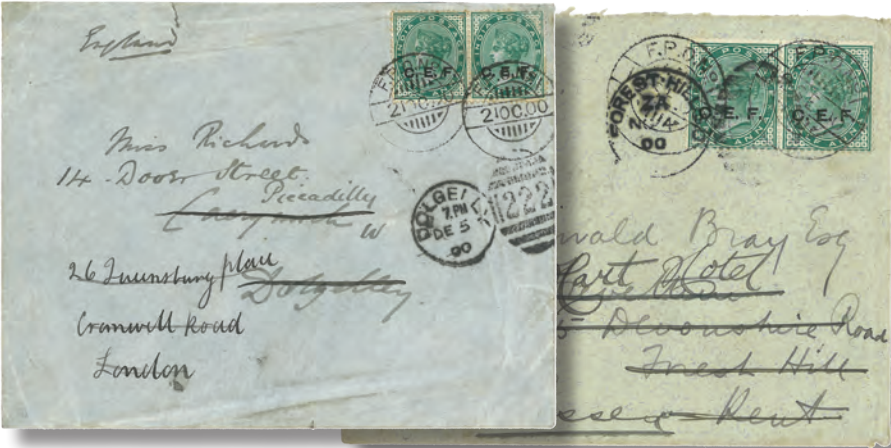 England
INDIA POSTAGE
C.E.F. C.E.F.
F.P.O. No
21 OC. 00
Miss Richards
14. Dover Street.
Piccadilly
W
DOLGE
7.PM
DE 5
00
222
26 Queensbury place
Dolgelley
Cromwell Road
London
F.P.O. No
FOREST-HILL
ZA
00
C.E.F. C.E.F.
Bray Esq
Hotel
Devonshire Road
Forest Hill
Kent